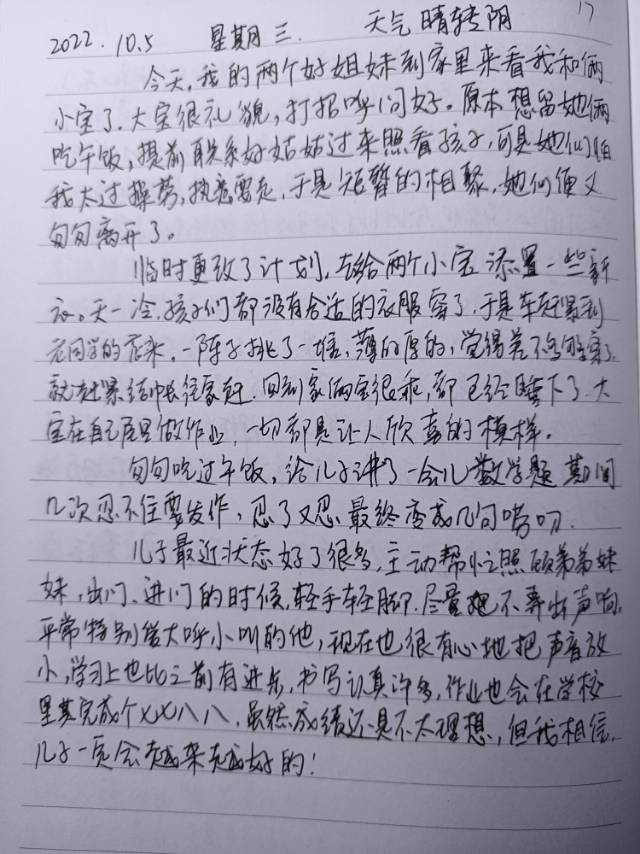 17
2022.10.5 星期三. 天气晴转阴
今天,我的两个好姐妹到家里来看我和俩
小宝了.大宝很礼貌,打招呼问好。原本想留她俩
吃午饭,提前联系好姑姑过来照看孩子,可是她们怕
我太过操劳,执意要走,于是短暂的相聚,她们便又
匆匆离开了。
临时更改了计划,去给两个小宝添置一些新
衣。天一冷,孩子们都没有合适的衣服穿了,于是车赶紧到
老同学的店来,一阵子挑了一堆,薄的厚的,觉得差不多够穿,
就赶紧结帐往家赶.回到家俩宝很乖,都已经睡下了.大
宝在自己屋里做作业,一切都是让人欣喜的模样。
匆匆吃过午饭,给儿子讲了一会儿数学题,期间
几次忍不住要发作,忍了又忍,最终变成几句唠叨.
儿子最近状态好了很多,主动帮忙照顾弟弟妹
妹,出门、进门的时候,轻手轻脚.尽量把不弄出声响,
平常特别爱大呼小叫的他,现在也很有心地把声音放
小,学习上也比之前有进步,书写认真许多,作业也会在学校
里头完成个七七八八.虽然成绩还是不太理想,但我相信,
儿子一定会越来越好的!